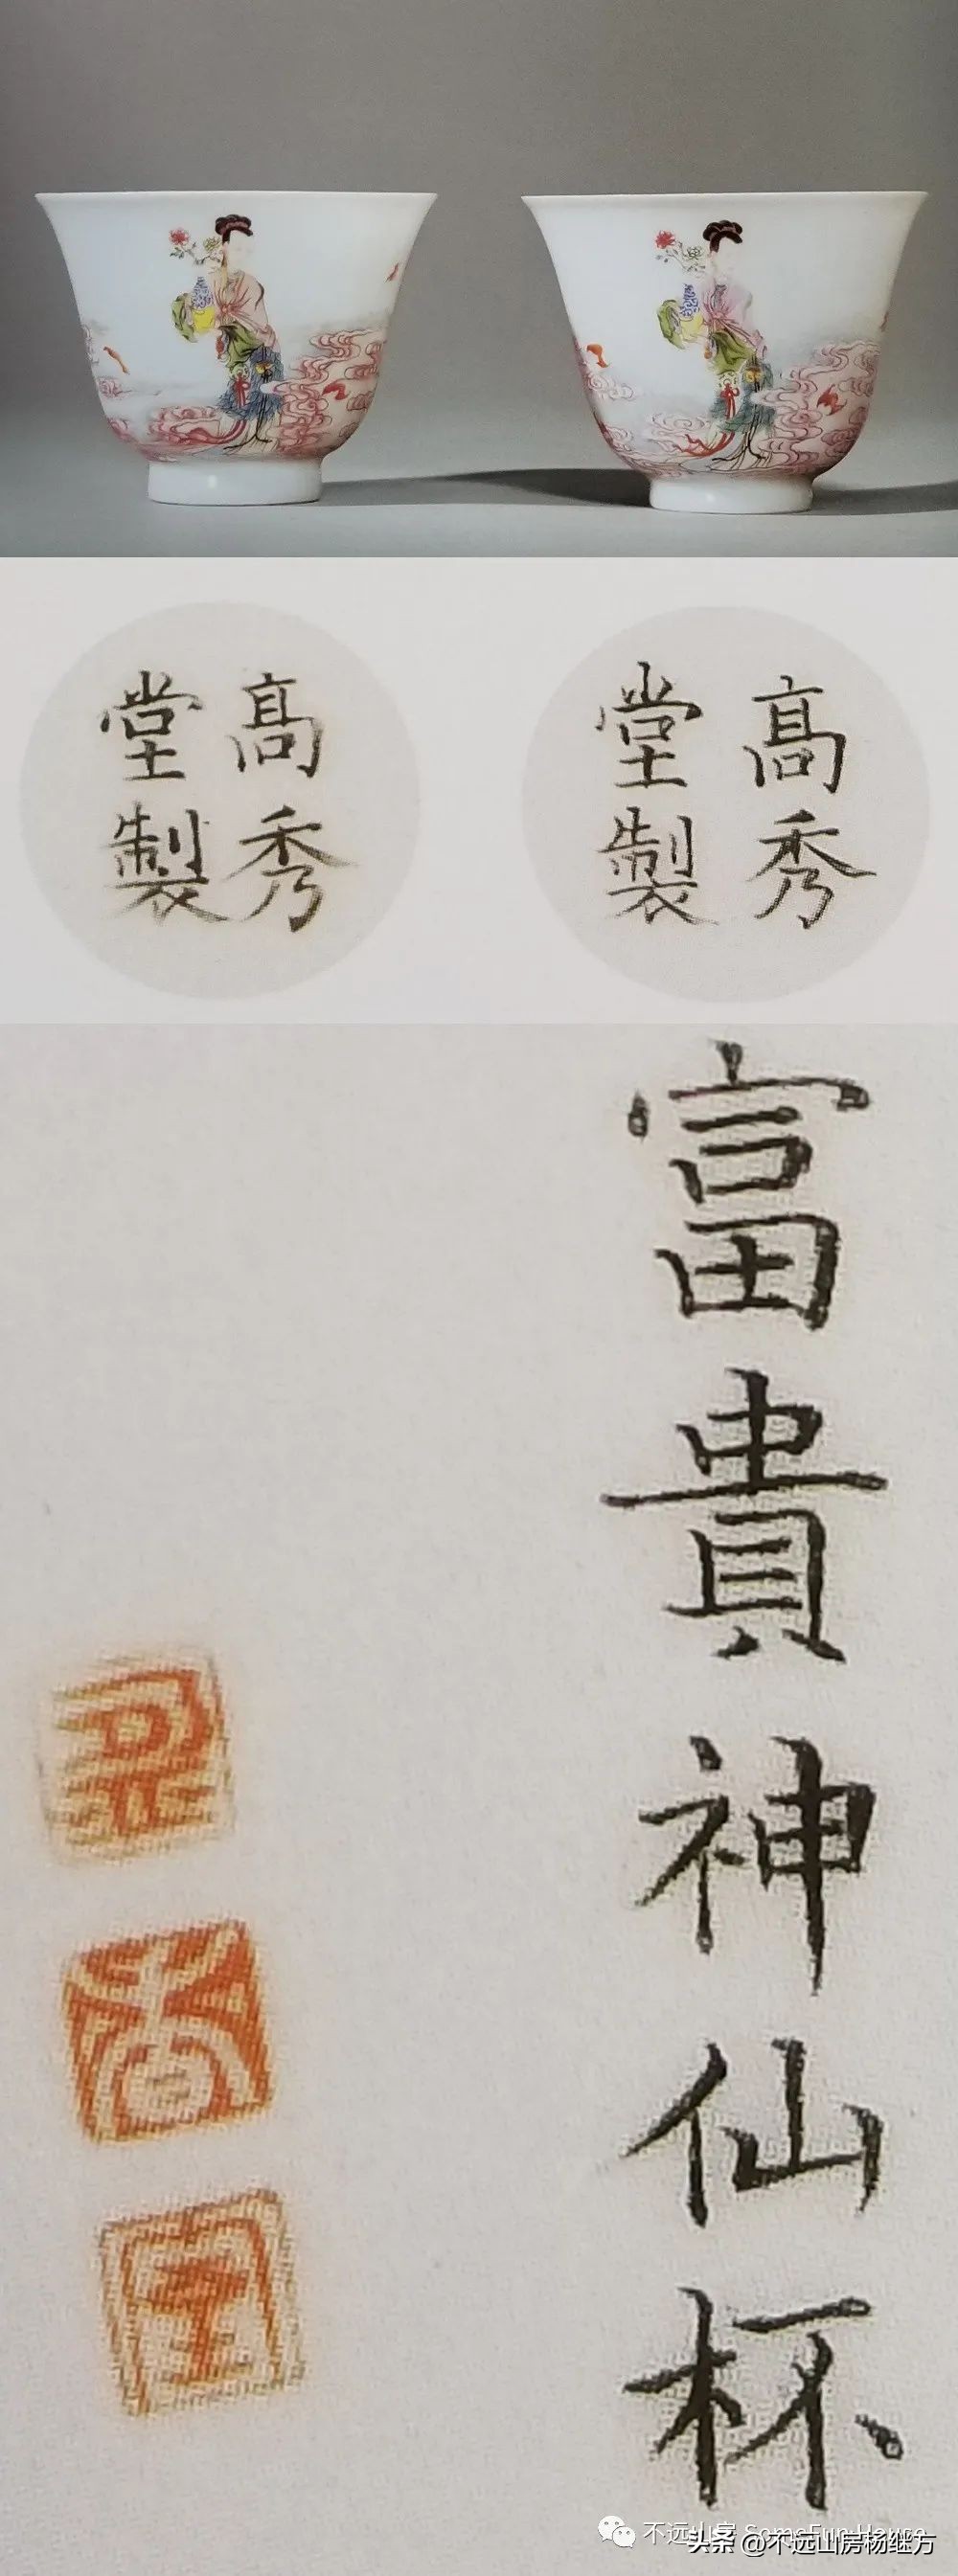 高秀
堂製
高秀
堂製
富貴神仙杯
不远山房 SomeFun House
头条 @不远山房杨继方